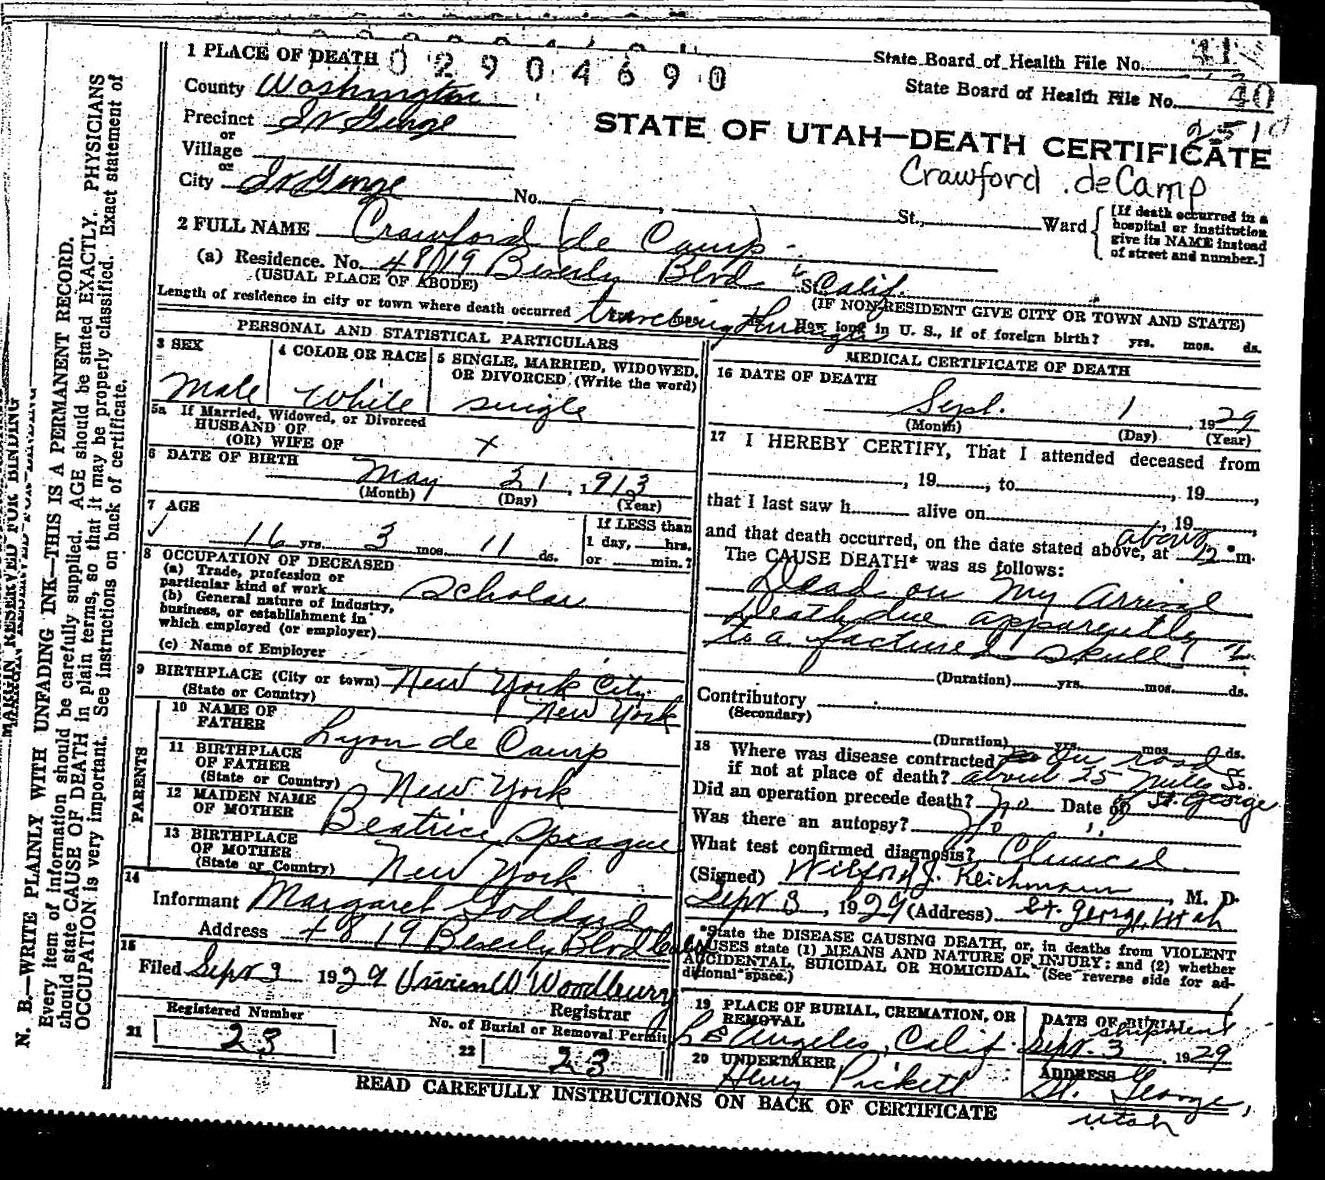 N. B.—WRITE PLAINLY WITH UNFADING INK—THIS IS A PERMANENT RECORD.
Every item of information should be carefully supplied. AGE should be stated EXACTLY. PHYSICIANS
should state CAUSE OF DEATH in plain terms, so that it may be properly classified. Exact statement of
OCCUPATION is very important. See instructions on back of certificate.
MARGIN RESERVED FOR BINDING
02904690
State Board of Health File No. 41
State Board of Health File No. 40
2510
STATE OF UTAH—DEATH CERTIFICATE
Crawford deCamp
1 PLACE OF DEATH
County Washington
Precinct St George
or
Village
or
City St George No. St., Ward
[If death occurred in a
hospital or institution
give its NAME instead
of street and number.]
2 FULL NAME Crawford (de Camp)
(a) Residence. No. 4819 Beverly Blvd St. Calif.
(USUAL PLACE OF ABODE) (IF NON-RESIDENT GIVE CITY OR TOWN AND STATE)
Length of residence in city or town where death occurred traveling through How long in U. S., if of foreign birth? yrs. mos. ds.
PERSONAL AND STATISTICAL PARTICULARS
3 SEX
Male
4 COLOR OR RACE
White
5 SINGLE, MARRIED, WIDOWED,
OR DIVORCED (Write the word)
single
5a If Married, Widowed, or Divorced
HUSBAND OF
(OR) WIFE OF x
6 DATE OF BIRTH
May 21, 1913
(Month) (Day) (Year)
7 AGE
16 yrs. 3 mos. 11 ds.
If LESS than
1 day, hrs.
or min.?
8 OCCUPATION OF DECEASED
(a) Trade, profession or
particular kind of work scholar
(b) General nature of industry,
business, or establishment in
which employed (or employer)
(c) Name of Employer
9 BIRTHPLACE (City or town) New York City
(State or Country) New York
PARENTS
10 NAME OF
FATHER Lyon de Camp
11 BIRTHPLACE
OF FATHER
(State or Country) New York
12 MAIDEN NAME
OF MOTHER Beatrice Sprague
13 BIRTHPLACE
OF MOTHER
(State or Country) New York
14
Informant Margaret Goddard
Address 4819 Beverly Blvd
15
Filed Sept 3 1929 Vivien W Woodbury
Registrar
Registered Number
21 23
No. of Burial or Removal Permit
22 23
MEDICAL CERTIFICATE OF DEATH
16 DATE OF DEATH
Sept. 1, 1929
(Month) (Day) (Year)
17 I HEREBY CERTIFY, That I attended deceased from
, 19 , to , 19 ,
that I last saw h alive on , 19
and that death occurred, on the date stated above, at about 12 m.
The CAUSE DEATH* was as follows:
Dead on my arrival
Death due apparently
to a factured skull!
(Duration) yrs. mos. ds.
Contributory
(Secondary)
(Duration) yrs. mos. ds.
18 Where was disease contracted on road
if not at place of death? about 25 miles So.
of St. George
Did an operation precede death? No Date of
Was there an autopsy? No
What test confirmed diagnosis? Clinical
(Signed) Wilford J. Reichmann, M. D.
Sept 3, 1929 (Address) St. George, Utah
*State the DISEASE CAUSING DEATH, or, in deaths from VIOLENT
CAUSES state (1) MEANS AND NATURE OF INJURY; and (2) whether
ACCIDENTAL, SUICIDAL OR HOMICIDAL. (See reverse side for ad-
ditional space.)
19 PLACE OF BURIAL, CREMATION, OR
REMOVAL
Los Angeles, Calif.
DATE OF BURIAL
shipment
Sept. 3, 1929
20 UNDERTAKER
Henry Pickett
ADDRESS
St. George,
Utah
READ CAREFULLY INSTRUCTIONS ON BACK OF CERTIFICATE